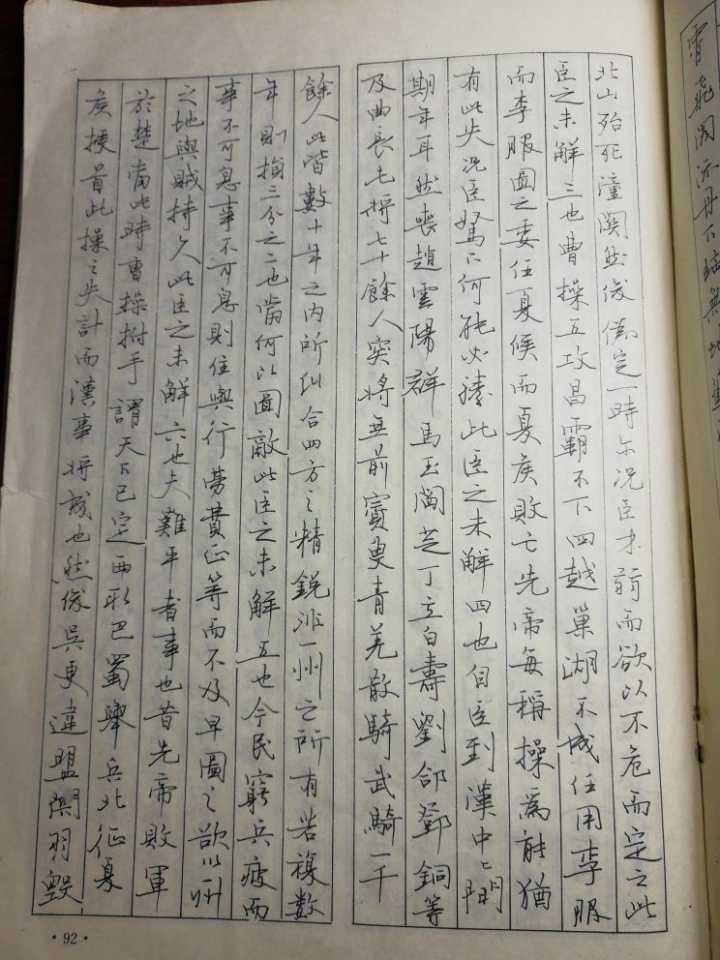 北山殆死潼關然後僞定一時尔况臣才弱而欲以不危而定之此
臣之未解三也曹操五攻昌霸不下四越巢湖不成任用李服
而李服圖之委任夏候而夏侯敗亡先帝每稱操爲能猶
有此失况臣駑下何能必勝此臣之未解四也自臣到漢中中間
期年耳然喪趙雲陽群馬玉閻芝丁立白壽劉郃鄧銅等
及曲長屯將七十餘人突將無前賨叟青羌散騎武騎一千
餘人此皆數十年之内所糾合四方之精銳非一州之所有若複數
年則損三分之二也當何以圖敵此臣之未解五也今民窮兵疲而
事不可息事不可息則住與行勞費正等而不及早圖之欲以一州
之地與賊持久此臣之未解六也夫難平者事也昔先帝敗軍
於楚當此時曹操拊手謂天下已定西取巴蜀舉兵北征夏
侯授首此操之失計而漢事将成也然後吳更違盟關羽毁
·92·